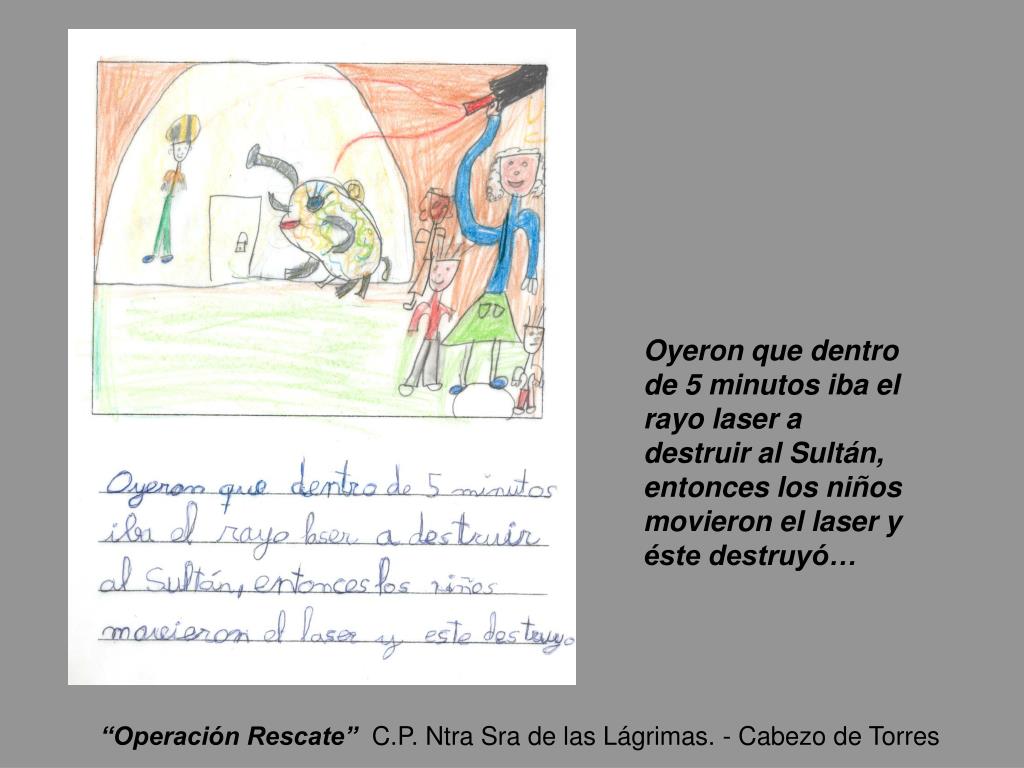 Oyeron que dentro de 5 minutos
iba el rayo laser a destruir
al Sultán, entonces los niños
movieron el laser y este destruyo
Oyeron que dentro
de 5 minutos iba el
rayo laser a
destruir al Sultán,
entonces los niños
movieron el laser y
éste destruyó…
“Operación Rescate” C.P. Ntra Sra de las Lágrimas. - Cabezo de Torres